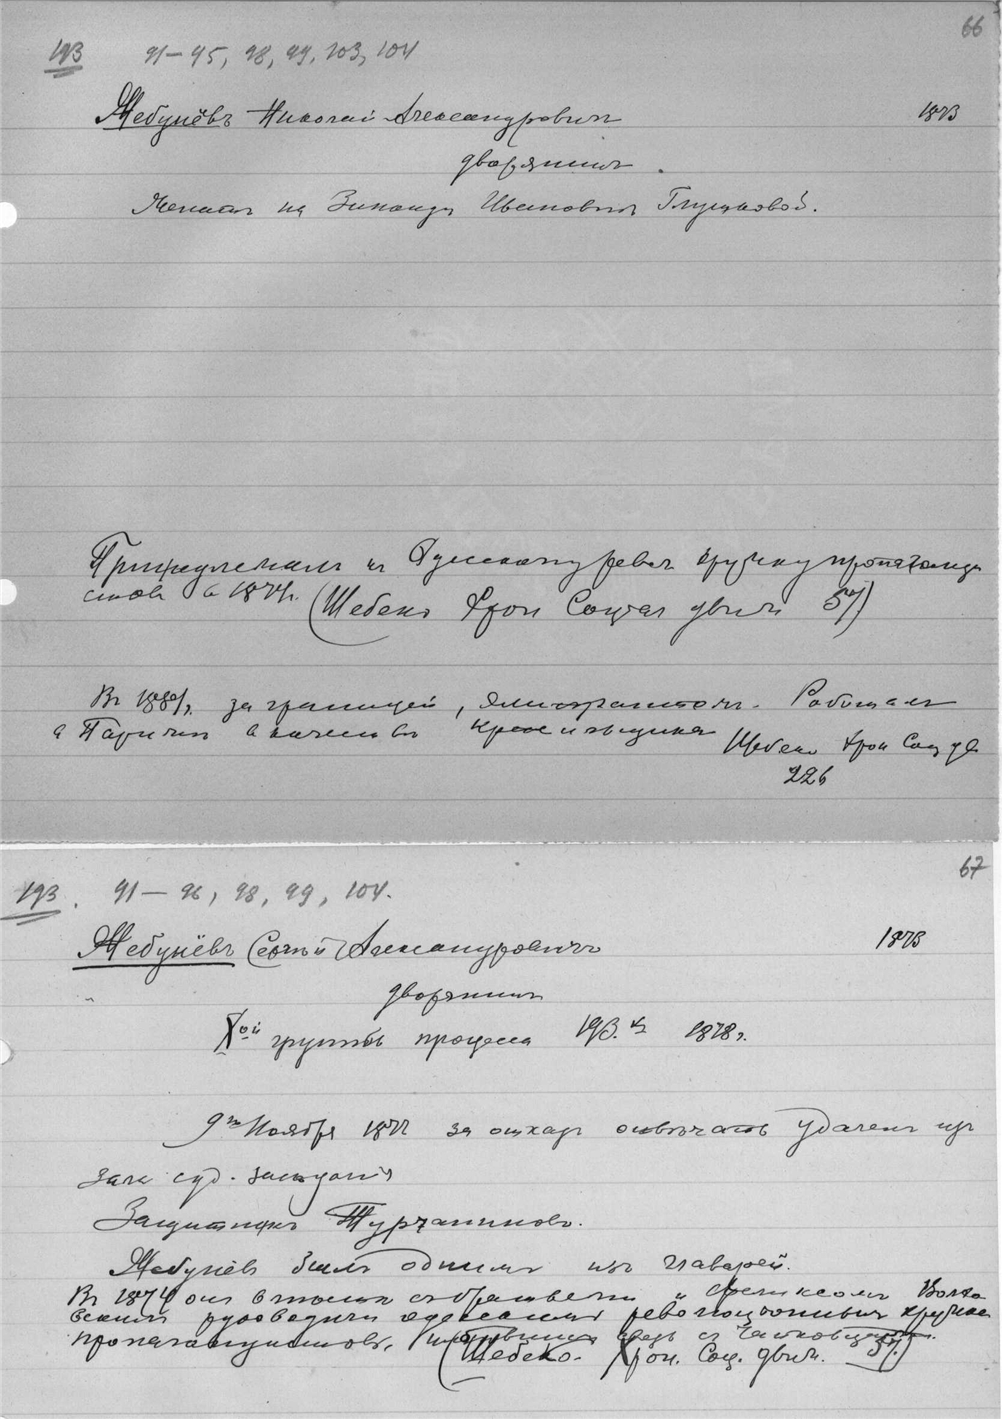 66
193 91–95, 98, 99, 103, 104
Жебунёвъ Николай Александровичъ 1873
дворянинъ.
Женатъ на Зинаиде Ивановнъ Глушковой.
Принадлежалъ къ Одесскому револ кружку пропаганди
стовъ въ 1874 г. (Шебеко Хрон Социал движ 57)
Въ 188 г. за границей, эмигрантом. Работалъ
в Париже в качестве красильщика Шебеко Хрон Соц дв
226
67
193. 91–96, 98, 99, 104.
Жебунёвъ Сергей Александровичъ 1873
дворянинъ
Xой группы процесса 193.х 1878 г.
9го Ноября 1877 за отказ отвѣчать удаленъ изъ
залы суд. заседанія
Защитникъ Турчаниновъ.
Жебунёвъ былъ однимъ изъ главарей.
Въ 1874 он вместе с братьями и Феликсом Волхо
вским руководили одесским революционным кружком
пропагандистовъ, связь с Чайковцами.
(Шебеко. Хрон. Соц. движ. 57.)